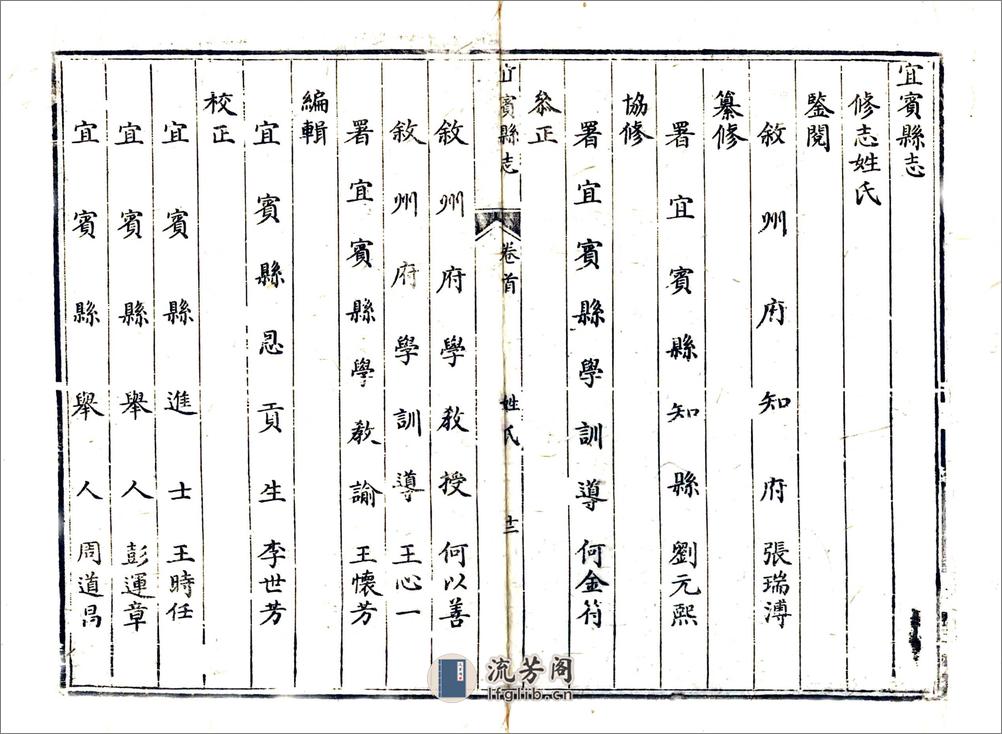 宜賓縣志
修志姓氏
鑒閱
敘州府知府張瑞溥
纂修
署宜賓縣知縣劉元熙
協修
署宜賓縣學訓導何金符
叅正
宜賓縣志 卷首 姓氏 十三
敘州府學教授何以善
敘州府學訓導王心一
署宜賓縣學教諭王懷芳
編輯
宜賓縣恩貢生李世芳
校正
宜賓縣進士王時任
宜賓縣舉人彭運章
宜賓縣舉人周道昌
流芳阁
lfglib.cn